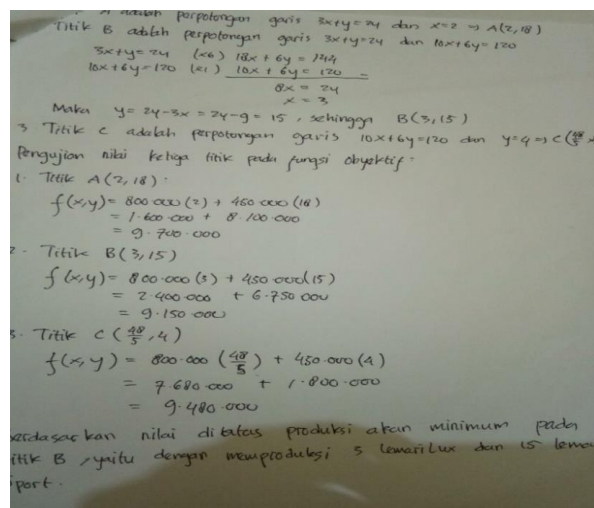 A adalah perpotongan garis 3x+y=24 dan x=2 => A(2,18)
Titik B adalah perpotongan garis 3x+y=24 dan 10x+6y=120
3x+y=24 (x6) 18x+6y=144
10x+6y=120 (x1) 10x+6y=120 -
8x = 24
x = 3
Maka y=24-3x=24-9=15, sehingga B(3,15)
3 Titik C adalah perpotongan garis 10x+6y=120 dan y=4 => C(48/5,
Pengujian nilai ketiga titik pada fungsi obyektif:
1. Titik A(2,18):
f(x,y) = 800.000(2) + 450.000(18)
= 1.600.000 + 8.100.000
= 9.700.000
2. Titik B(3,15)
f(x,y) = 800.000(3) + 450.000(15)
= 2.400.000 + 6.750.000
= 9.150.000
3. Titik C(48/5,4)
f(x,y) = 800.000(48/5) + 450.000(4)
= 7.680.000 + 1.800.000
= 9.480.000
berdasarkan nilai diatas produksi akan minimum pada
titik B, yaitu dengan memproduksi lemari Lux dan 15 lema
sport.